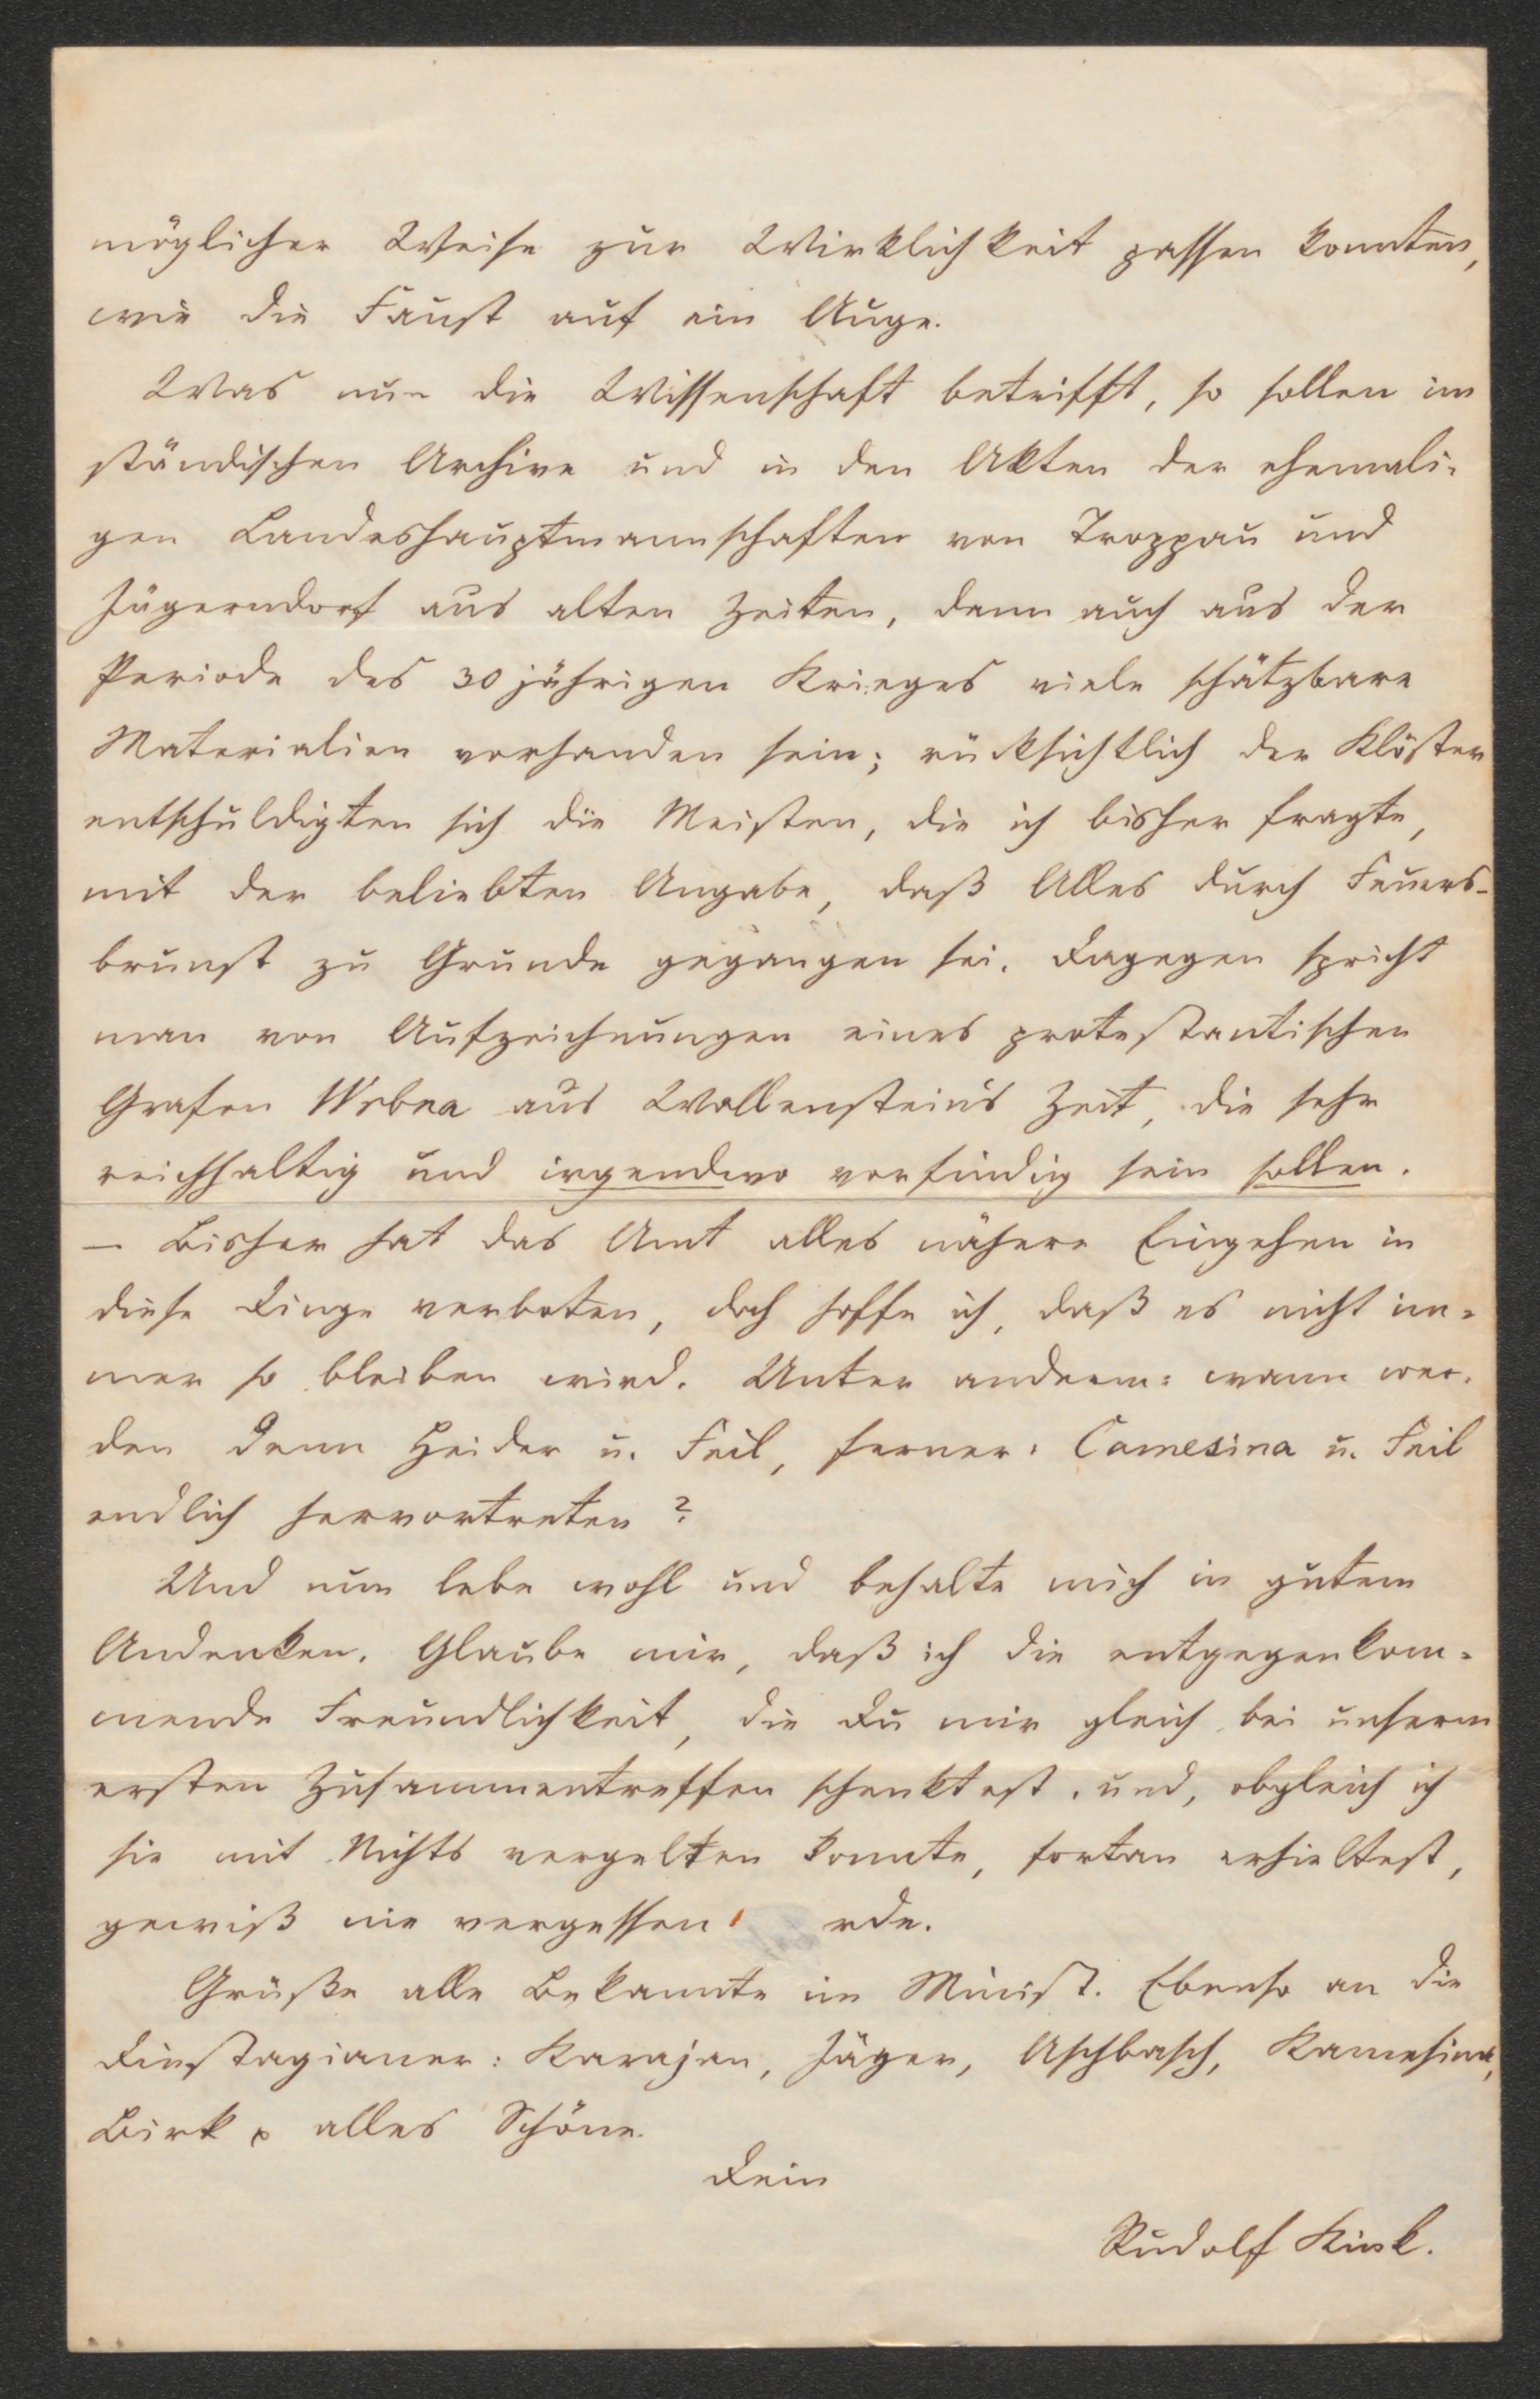 möglicher Weise zur Wirklichkeit passen konnten,
wie die Faust auf ein Auge.
Was nun die Wissenschaft betrifft, so sollen im
ständischen Archive und in den Akten der ehemali-
gen Landeshauptmannschaften von Troppau und
Jägerndorf aus alten Zeiten, dann auch aus der
Periode des 30 jährigen Krieges viele schätzbare
Materialien vorhanden sein; rücksichtlich der Klöster
entschuldigten sich die Meisten, die ich bisher fragte,
mit der beliebten Angabe, daß Alles durch Feuers-
brunst zu Grunde gegangen sei. Dagegen spricht
man von Aufzeichnungen eines protestantischen
Grafen Wrbna aus Wallenstein's Zeit, die sehr
reichhaltig und irgendwo vorfindig sein sollen.
— Bisher hat das Amt alles nähere Eingehen in
diese Dinge verboten, doch hoffe ich, daß es nicht im-
mer so bleiben wird. Unter anderem: wann wer-
den denn Heider u. Feil, ferner: Camesina u. Feil
endlich hervortreten?
Und nun lebe wohl und behalte mich in gutem
Andenken. Glaube mir, daß ich die entgegenkom-
mende Freundlichkeit, die Du mir gleich bei unserm
ersten Zusammentreffen schenktest, und, obgleich ich
sie mit Nichts vergelten konnte, fortan erhieltest,
gewiß nie vergessen rde.
Grüße alle Bekannte im Minist. Ebenso an die
Dinstagianer: Karajan, Jäger, Aschbach, Kamesina,
Birk alles Schöne.
Dein
Rudolf Kink.